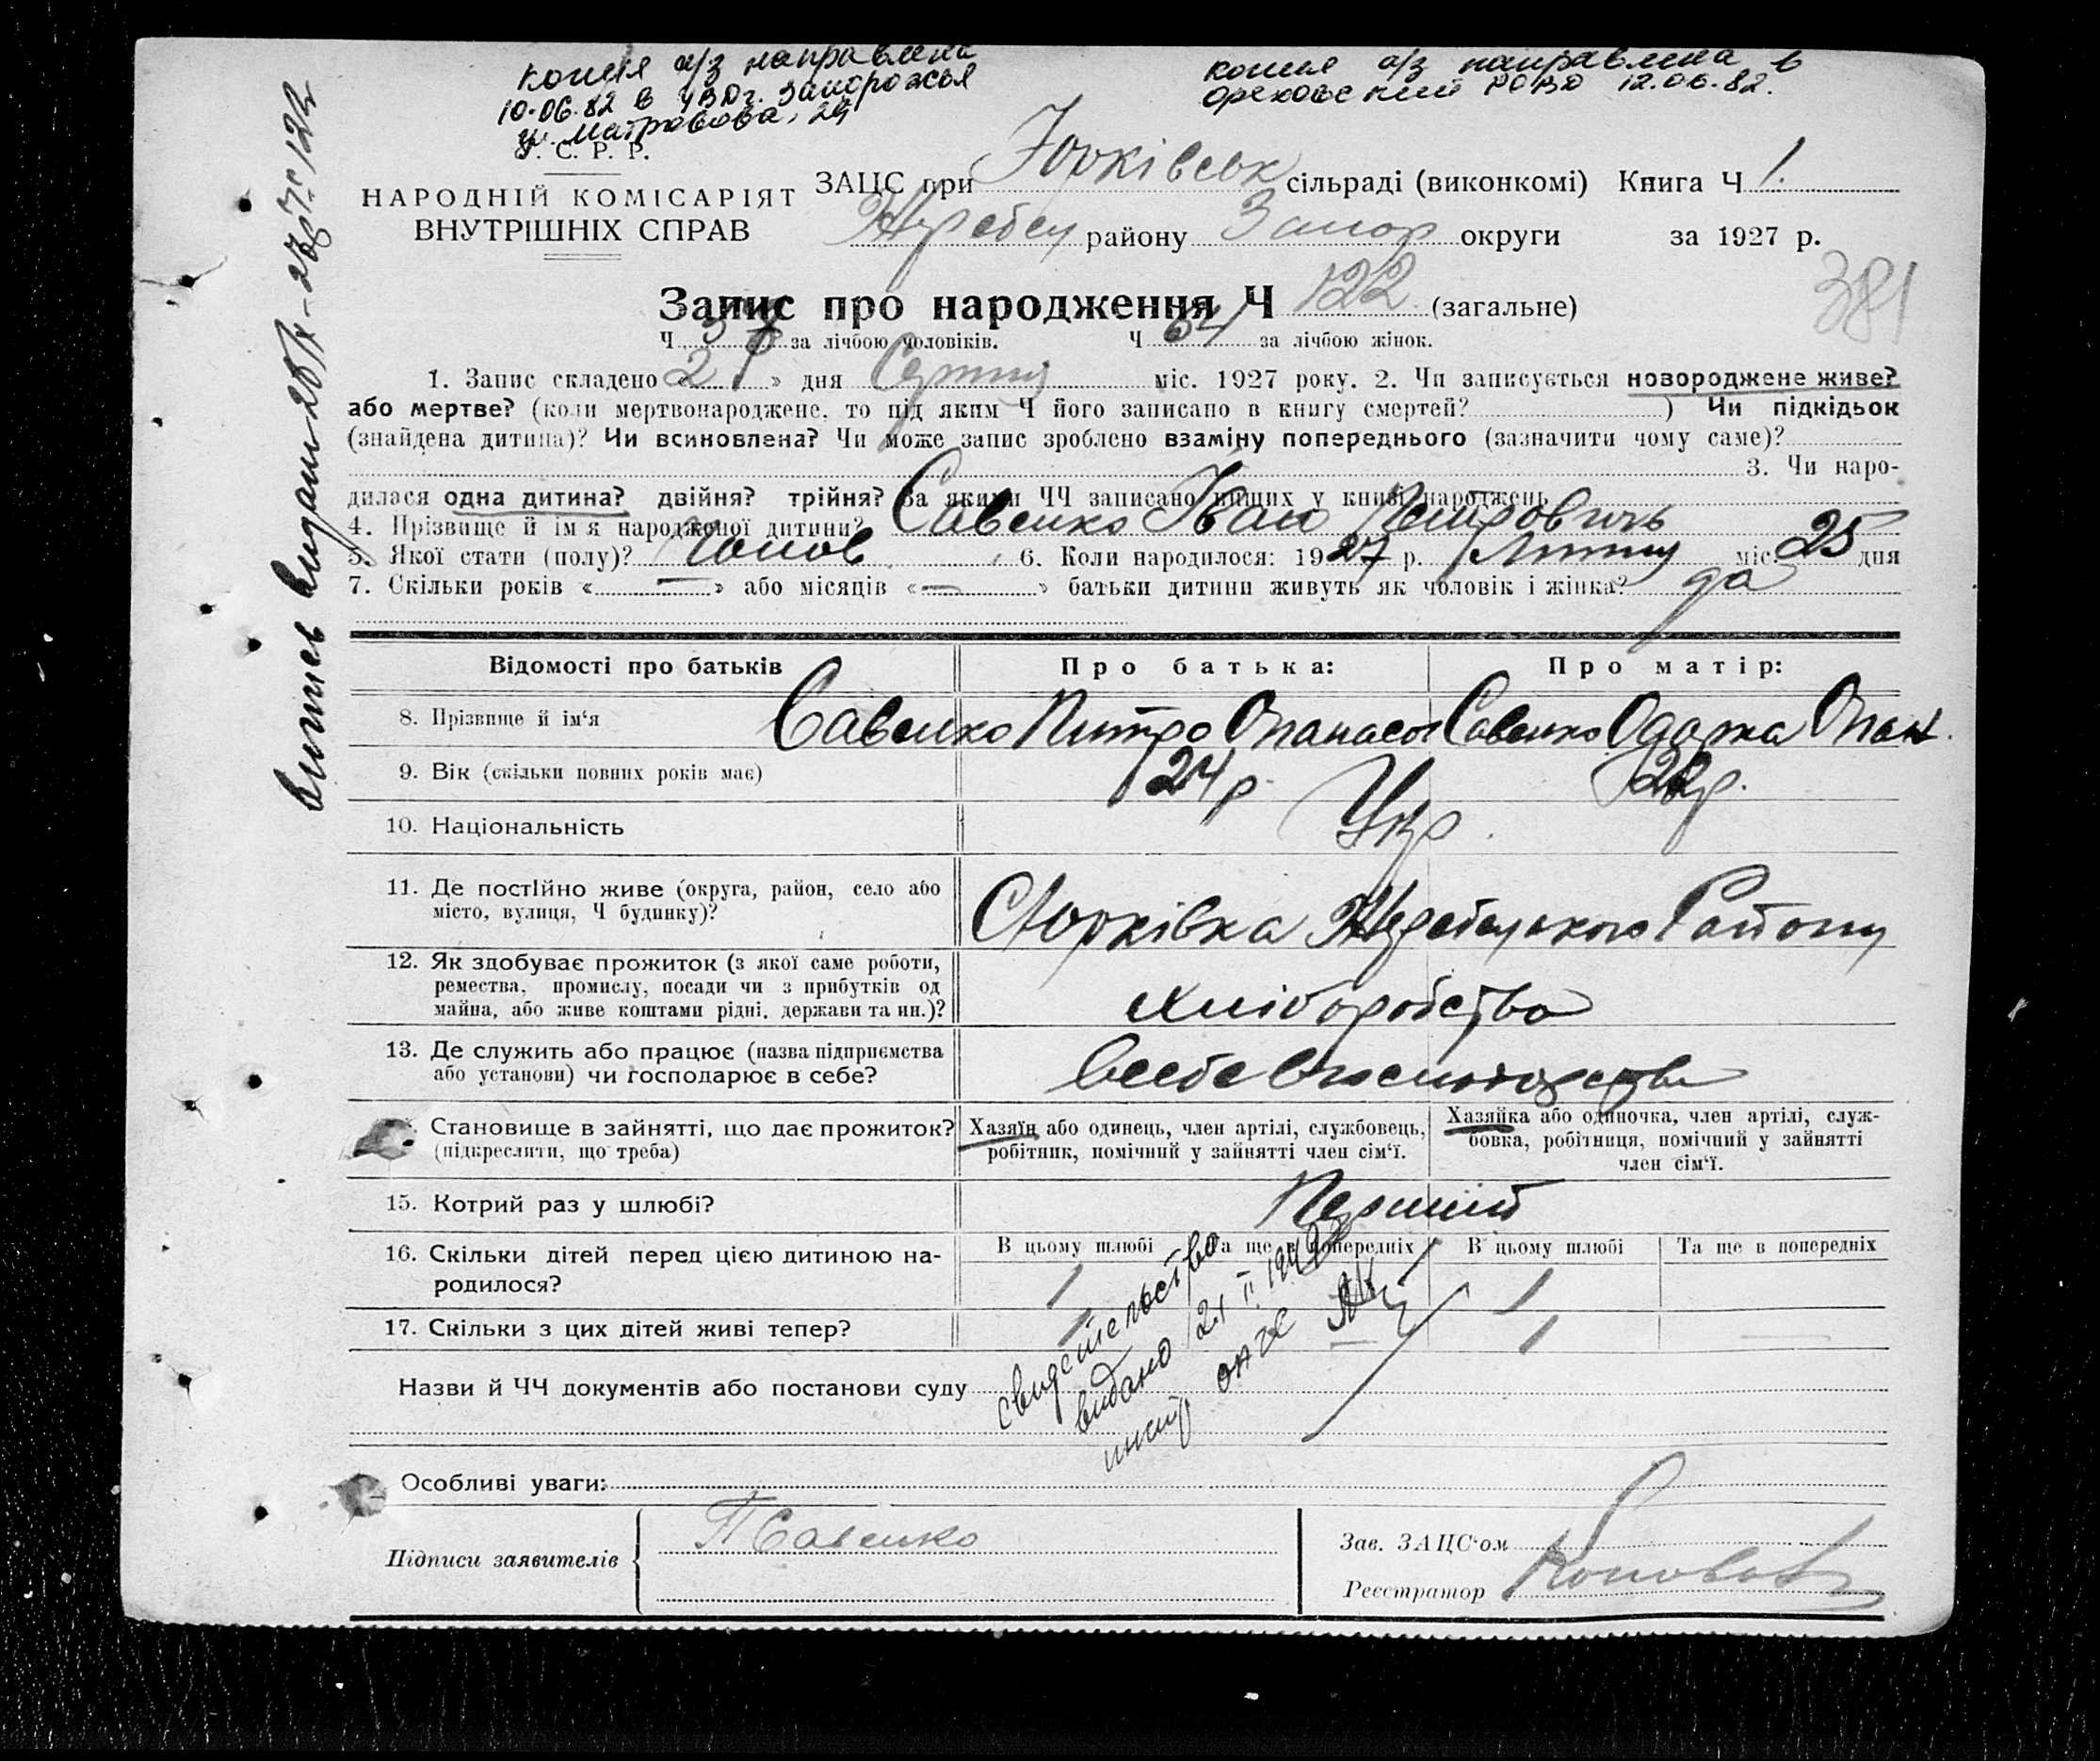 копия а/з направлена
10.06.82 в УВД г. Запорожья
ул. Матросова, 29
копия а/з направлена в
Ореховский РОВД 12.06.82.
У. С. Р. Р.
НАРОДНІЙ КОМІСАРІЯТ
ВНУТРІШНІХ СПРАВ
ЗАЦС при Юрківськ сільраді (виконкомі) Книга Ч 1.
Жеребец району Запор округи за 1927 р.
381
Запис про народження Ч 122 (загальне)
Ч за лічбою чоловіків. Ч 64 за лічбою жінок.
1. Запис складено « 27 » дня Серпня міс. 1927 року. 2. Чи записується новороджене живе?
або мертве? (коли мертвонароджене, то під яким Ч його записано в книгу смертей? ) Чи підкідьок
(знайдена дитина)? Чи всиновлена? Чи може запис зроблено взаміну попереднього (зазначити чому саме)?
3. Чи наро-
дилася одна дитина? двійня? трійня? За якими ЧЧ записано инших у книзі народжень
4. Прізвище й ім'я народженої дитини? Савенко Іван Петровичь
5. Якої стати (полу)? Чолов 6. Коли народилося: 1927 р. Липня міс. 25 дня
7. Скільки років « — » або місяців « — » батьки дитини живуть як чоловік і жінка? да
Відомості про батьків Про батька: Про матір:
8. Прізвище й ім'я Савенко Питро Опанасов Савенко Одарка Опан.
9. Вік (скільки повних років має) 24 р. 22 р.
10. Національність Укр.
11. Де постійно живе (округа, район, село або
місто, вулиця, Ч будинку)? С Юрківка Жеребецького Району
12. Як здобуває прожиток (з якої саме роботи,
ремества, промислу, посади чи з прибутків од
майна, або живе коштами рідні, держави та ин.)? хліборобство
13. Де служить або працює (назва підприємства
або установи) чи господарює в себе? В себе в господарстві
Становище в зайнятті, що дає прожиток?
(підкреслити, що треба)
Хазяїн або одинець, член артілі, службовець,
робітник, помічний у зайнятті член сім'ї.
Хазяйка або одиночка, член артілі, служ-
бовка, робітниця, помічний у зайнятті
член сім'ї.
15. Котрий раз у шлюбі? Перший
16. Скільки дітей перед цією дитиною на-
родилося?
В цьому шлюбі Та ще в попередніх В цьому шлюбі Та ще в попередніх
1 1
17. Скільки з цих дітей живі тепер? 1 — 1 —
Назви й ЧЧ документів або постанови суду
свидетельство
видано 21 II
Особливі уваги:
Підписи заявителів П Савенко
Зав. ЗАЦС'ом
Реєстратор
витяг видан